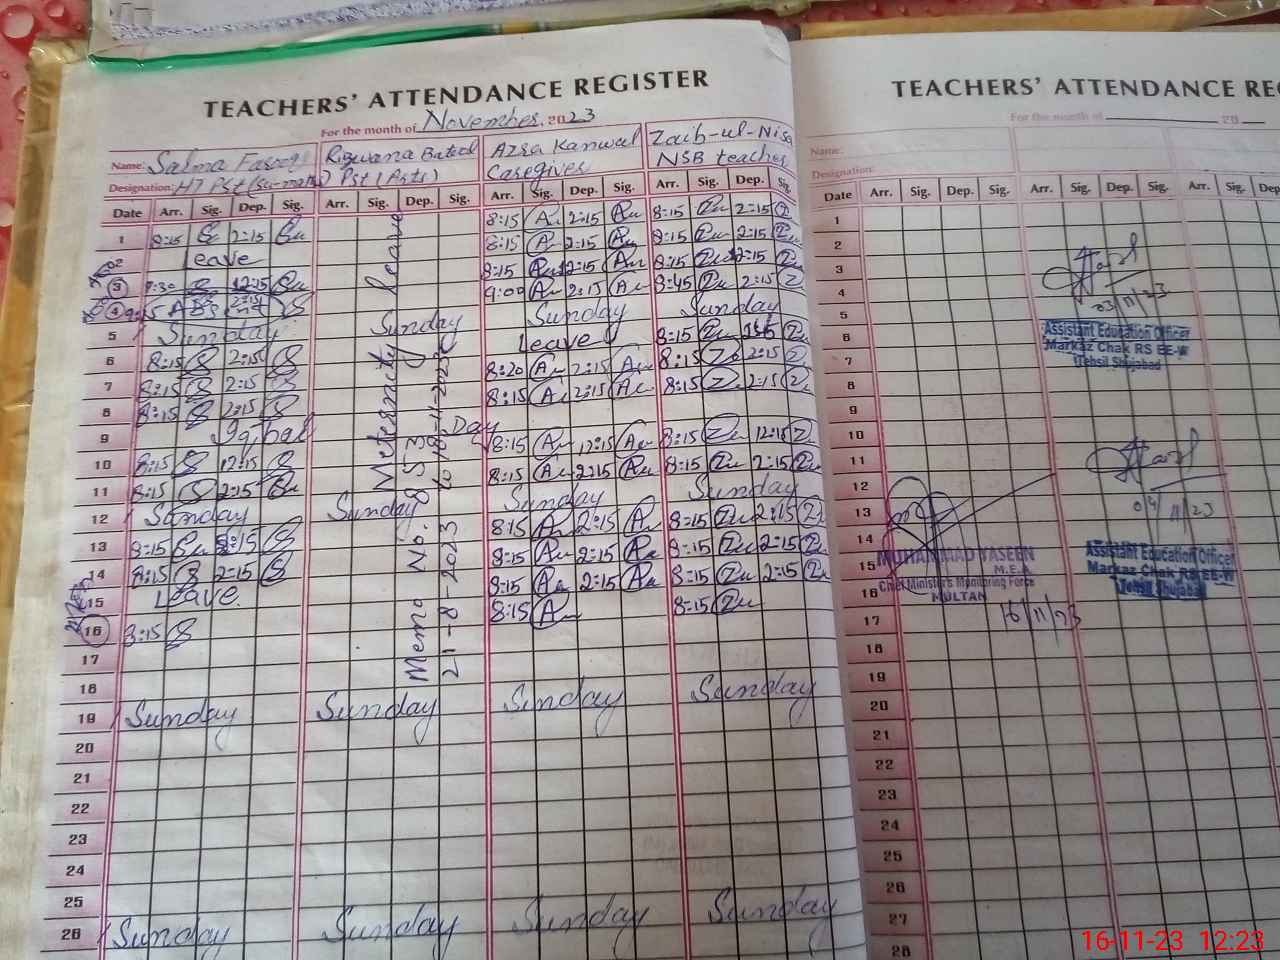 TEACHERS' ATTENDANCE REGISTER
For the month of November. 2023
Name: Salma Farooq Rizwana Batool Azra Kanwal Zaib-ul-Nisa
Designation: Pst Pst Caregiver NSB teacher
Date Arr. Sig. Dep. Sig. Arr. Sig. Dep. Sig. Arr. Sig. Dep. Sig. Arr. Sig. Dep. Sig.
1 8:15 2:15 8:15 2:15 8:15 2:15
2 Leave 8:15 2:15 8:15 2:15
3 12:15 8:15 12:15 8:15 12:15
4 9:00 2:15 8:45 2:15
5 Sunday Sunday Sunday Sunday
6 8:15 2:15 Leave 8:15
7 8:15 2:15 8:20 2:15 8:15 2:15
8 8:15 2:15 8:15 2:15 8:15 2:15
9 Iqbal Day
10 8:15 12:15 8:15 12:15 8:15 12:15
11 8:15 2:15 8:15 2:15 8:15 2:15
12 Sunday Sunday Sunday Sunday
13 8:15 2:15 8:15 2:15 8:15 2:15
14 8:15 2:15 8:15 2:15 8:15 2:15
15 Leave. 8:15 2:15 8:15 2:15
16 8:15 8:15 8:15
17
18
19 Sunday Sunday Sunday Sunday
20
21
22
23
24
25
26 Sunday Sunday Sunday Sunday
Meternity Leave
Memo No. 853
21-8-2023 to 18-11-2023
TEACHERS' ATTENDANCE RE
For the month of 20
Name:
Designation:
Date Arr. Sig. Dep. Sig. Arr. Sig. Dep. Sig. Arr.
1
2
3
4
5
6
7
8
9
10
11
12
13
14
15
16
17
18
19
20
21
22
23
24
25
26
27
28
03/11/23
Assistant Education Officer
Markaz Chak RS EE-W
Tehsil Shujabad
04/11/23
Assistant Education Officer
Markaz Chak RS EE-W
Tehsil Shujabad
MUHAMMAD YASEEN
M.E.A
Chief Minister's Monitoring Force
MULTAN
16/11/23
16-11-23 12:23